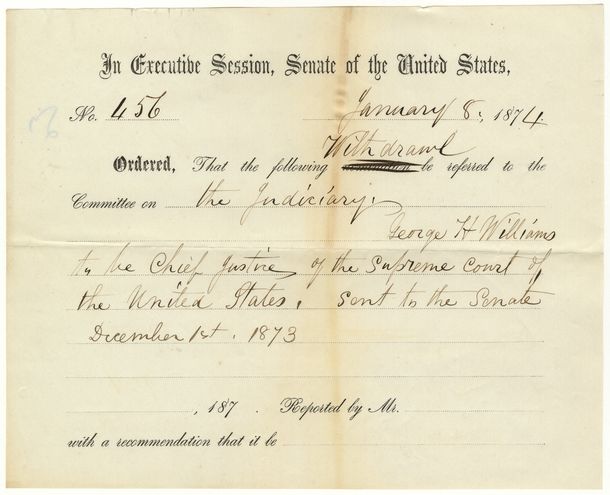 In Executive Session, Senate of the United States,
No. 456 January 8, 1874
Withdrawl
Ordered, That the following be referred to the
Committee on the Judiciary.
George H Williams
to be Chief Justice of the Supreme Court of
the United States, sent to the Senate
December 1st. 1873
, 187 . Reported by Mr.
with a recommendation that it be